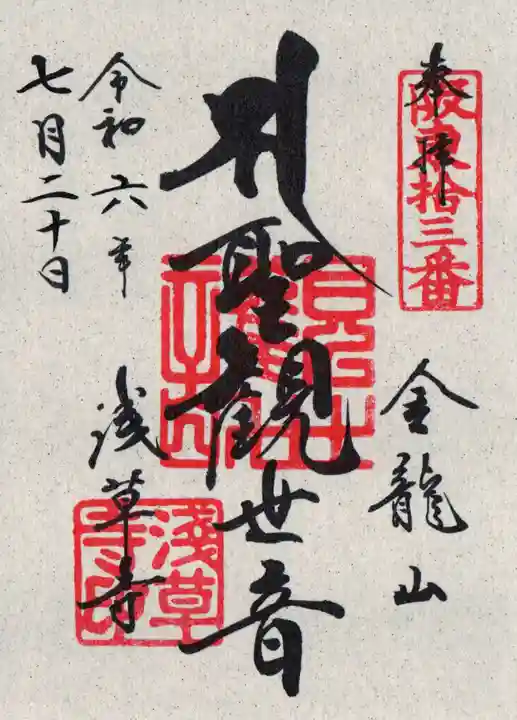 奉拝
阪東拾三番
金龍山
聖観世音
浅草寺
淺草寺印
令和六年
七月二十日